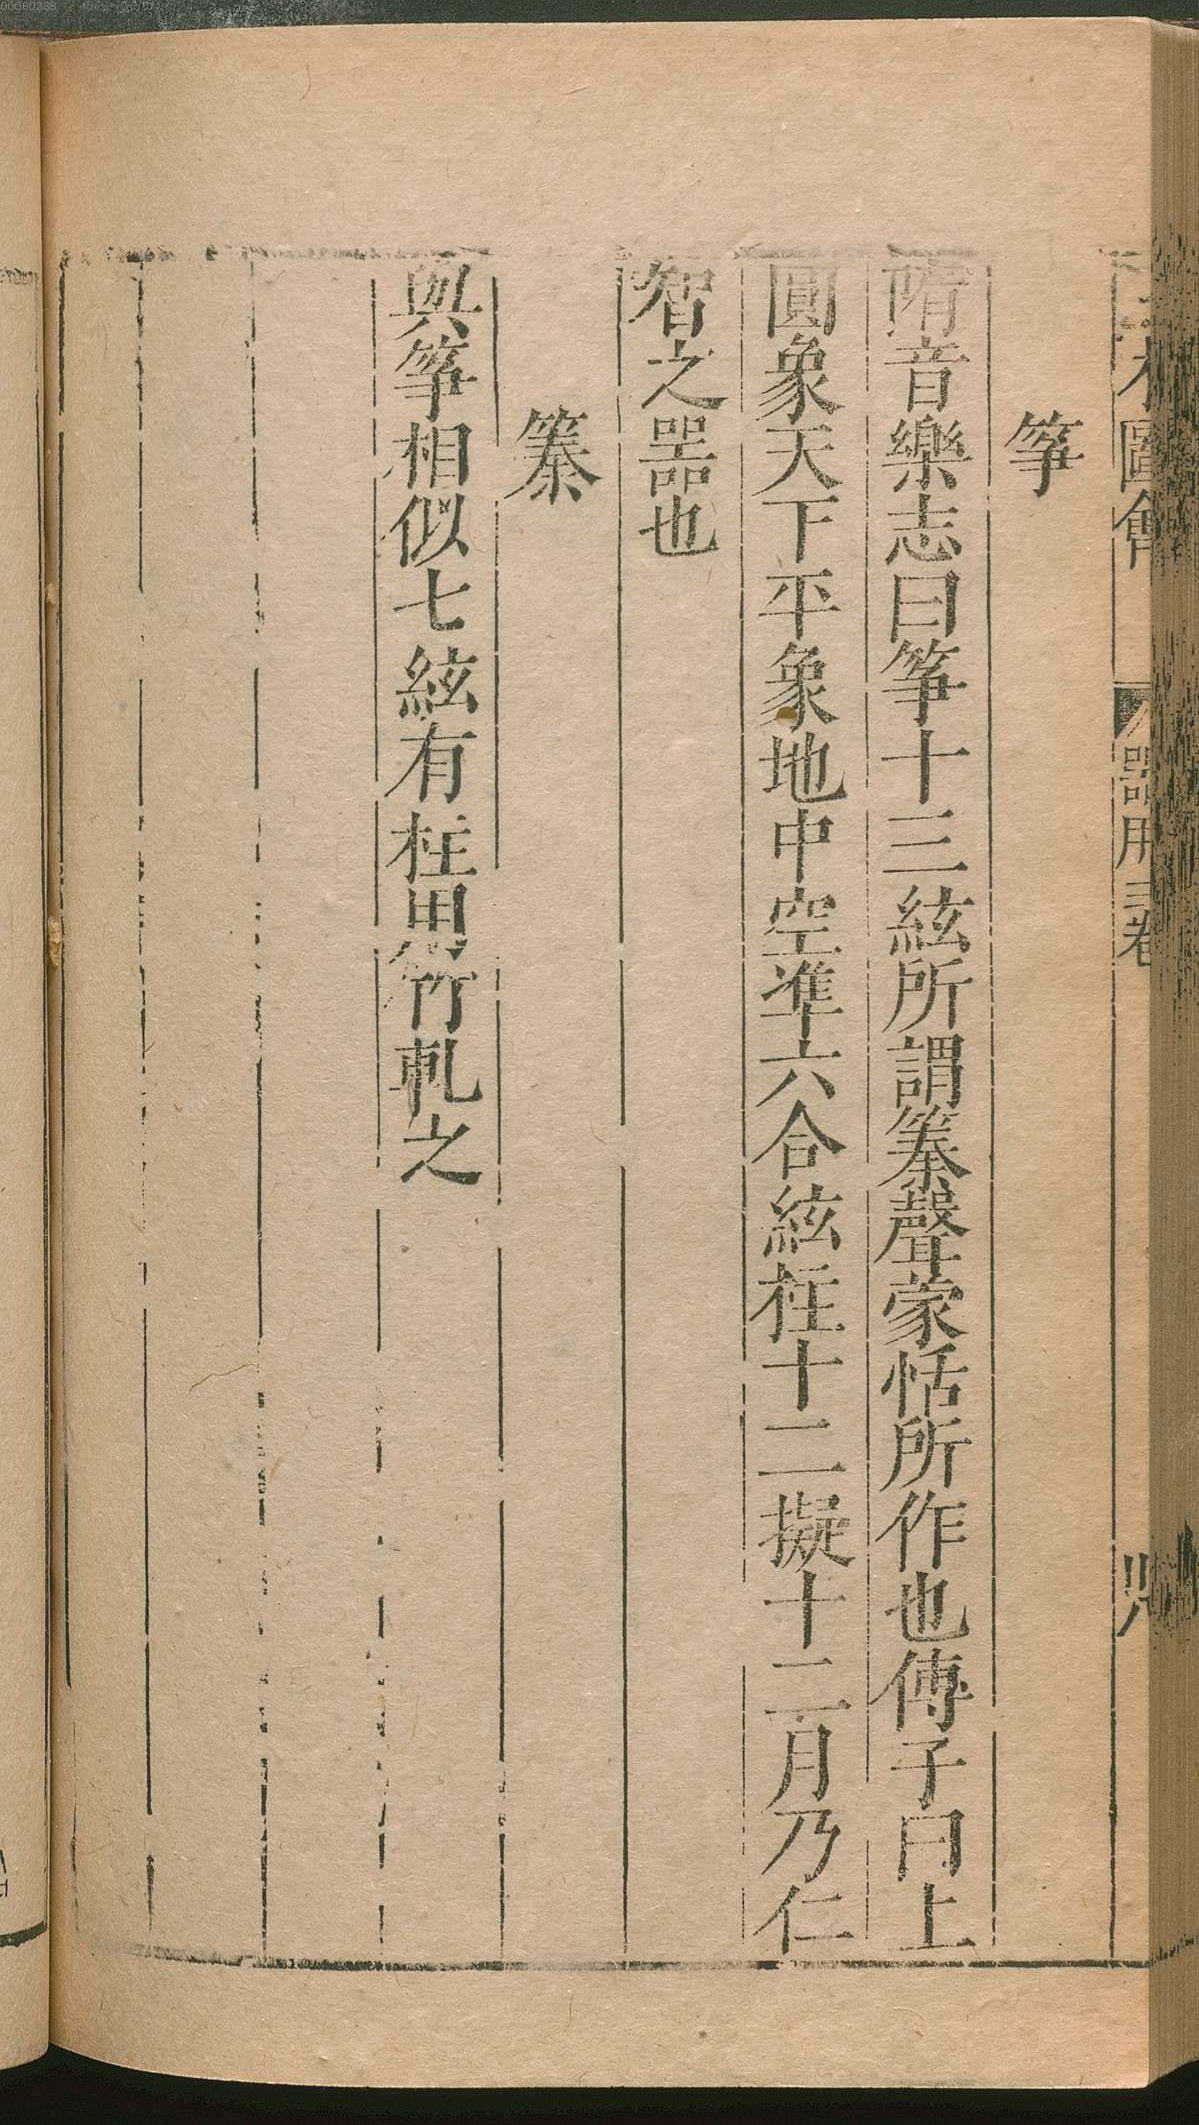 00060238
才圖會 器用三卷
箏
隋音樂志曰箏十三絃所謂聲蒙恬所作也傅子曰上
圓象天下平象地中空準六合絃柱十二擬十二月乃仁
智之器也
與箏相似七絃有柱用竹軋之